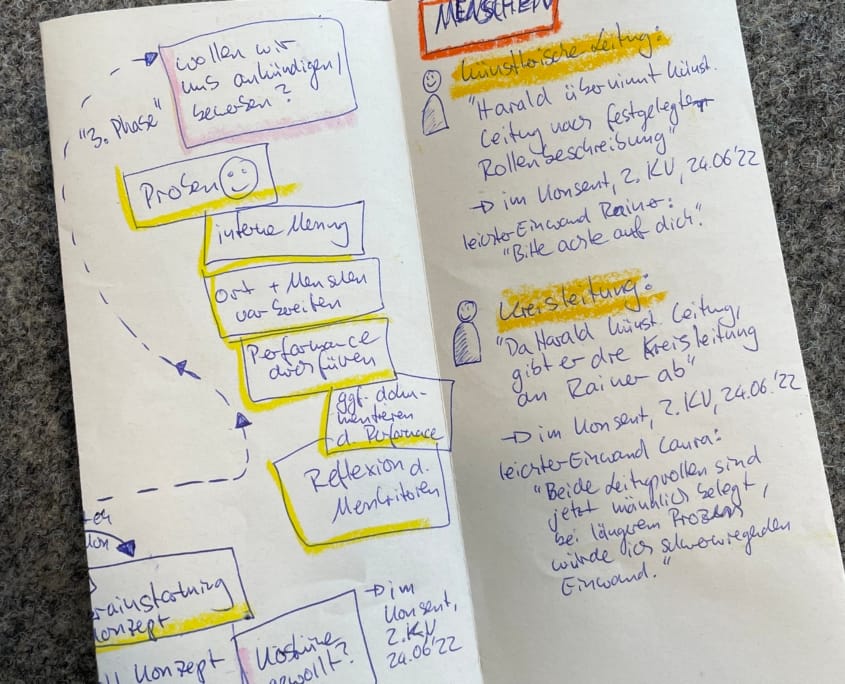 wollen wir
uns ankündigen/
bewerben?
"3. Phase"
Proben
interne Menny
Ort + Menschen
vorbereiten
Performance
durchfüren
ggf. doku-
mentieren
d. Performace
Reflexion d.
→ im
Konsent,
2. KV
24.06'22
rainstorming
Konzept
Konzept
Kostüme
gewollt?
MENSCHEN
künstlerische Leitung:
"Harald übernimmt künst.
Leitung nach festgelegter
Rollenbeschreibung"
→ im Konsent, 2. KV, 24.06'22
leichter Einwand Rainer:
"Bitte achte auf dich".
Kreisleitung:
"Da Harald künst. Leitung,
gibt er die Kreisleitung
an Rainer ab"
→ im Konsent, 2. KV, 24.06.'22
leichter Einwand Laura:
"Beide Leitungsrollen sind
jetzt männlich belegt,
bei längerem Prozess
würde ich schwerwiegenden
Einwand."